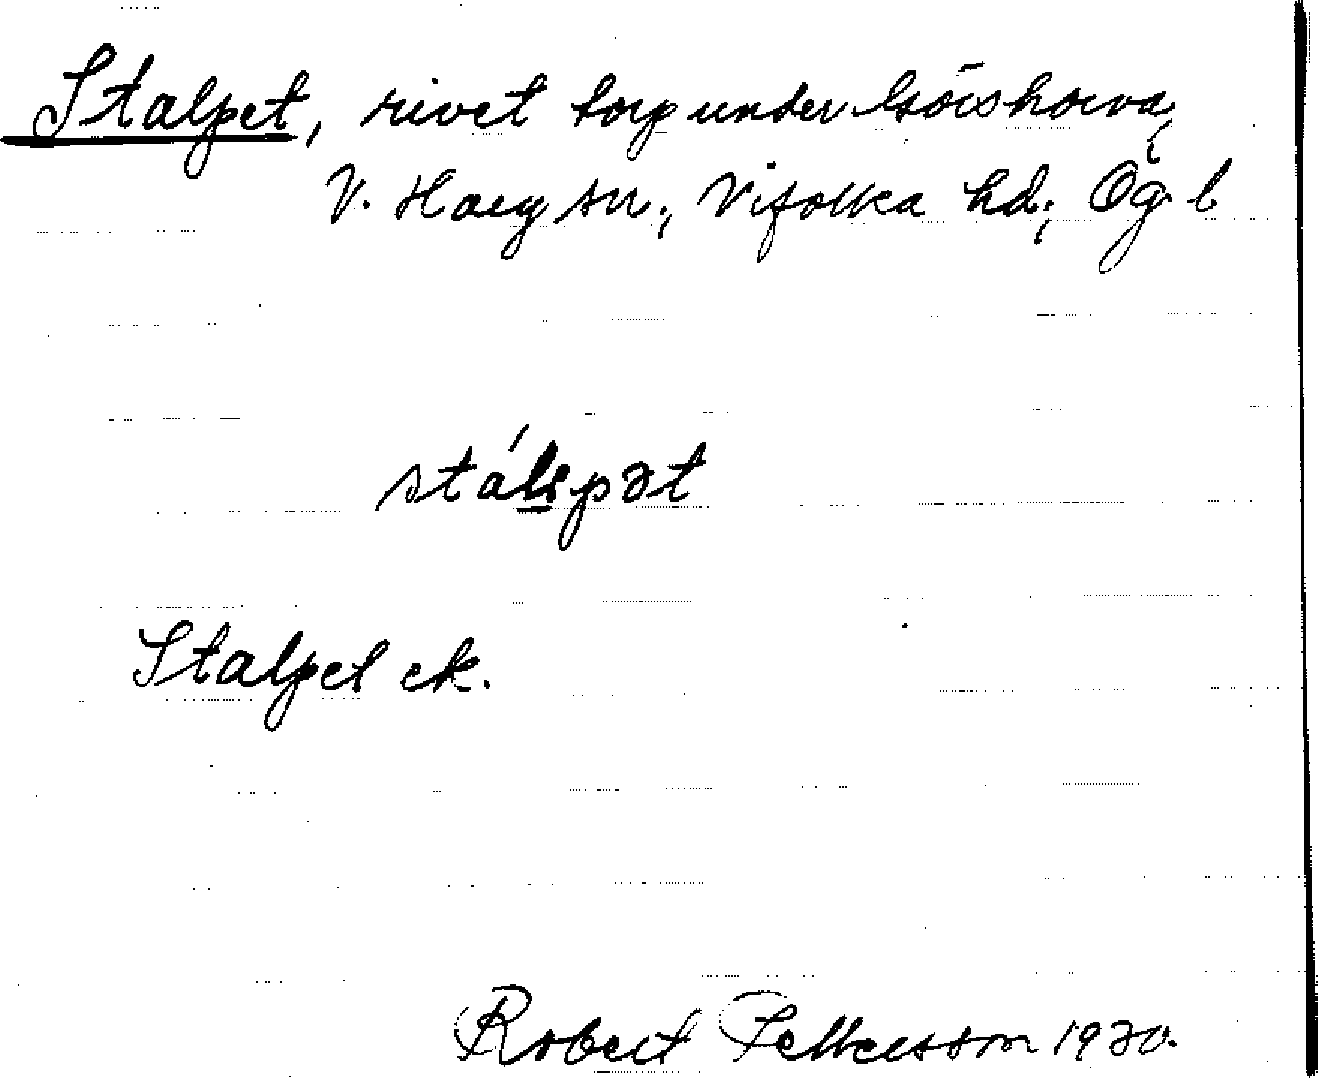 Stalpet, rivet torp under
V. Harg sn., Vifolka hd., Ög. l
stál̲pət
Stalpet ek.
Robert Pettersson 1930.